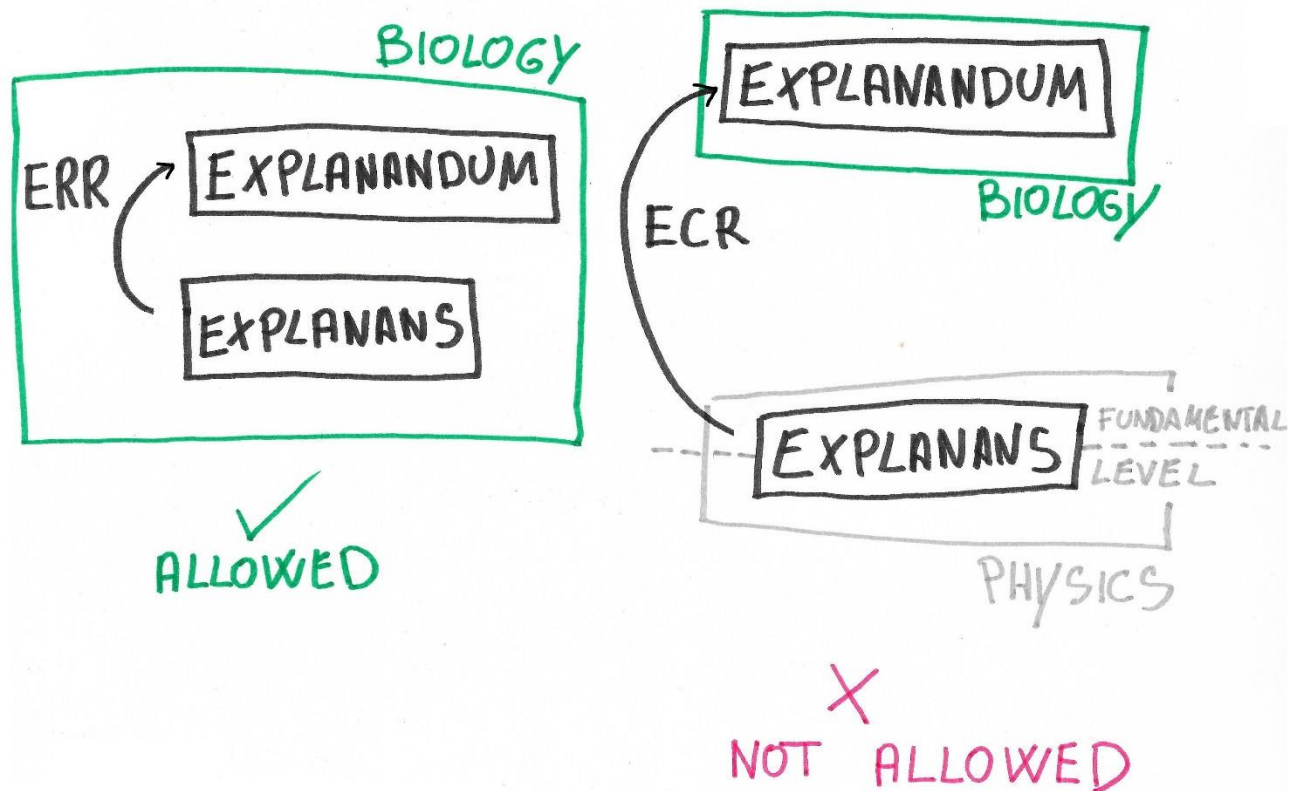 BIOLOGY
ERR
EXPLANANDUM
EXPLANANS
ALLOWED
EXPLANANDUM
BIOLOGY
ECR
EXPLANANS
FUNDAMENTAL
LEVEL
PHYSICS
X
NOT ALLOWED